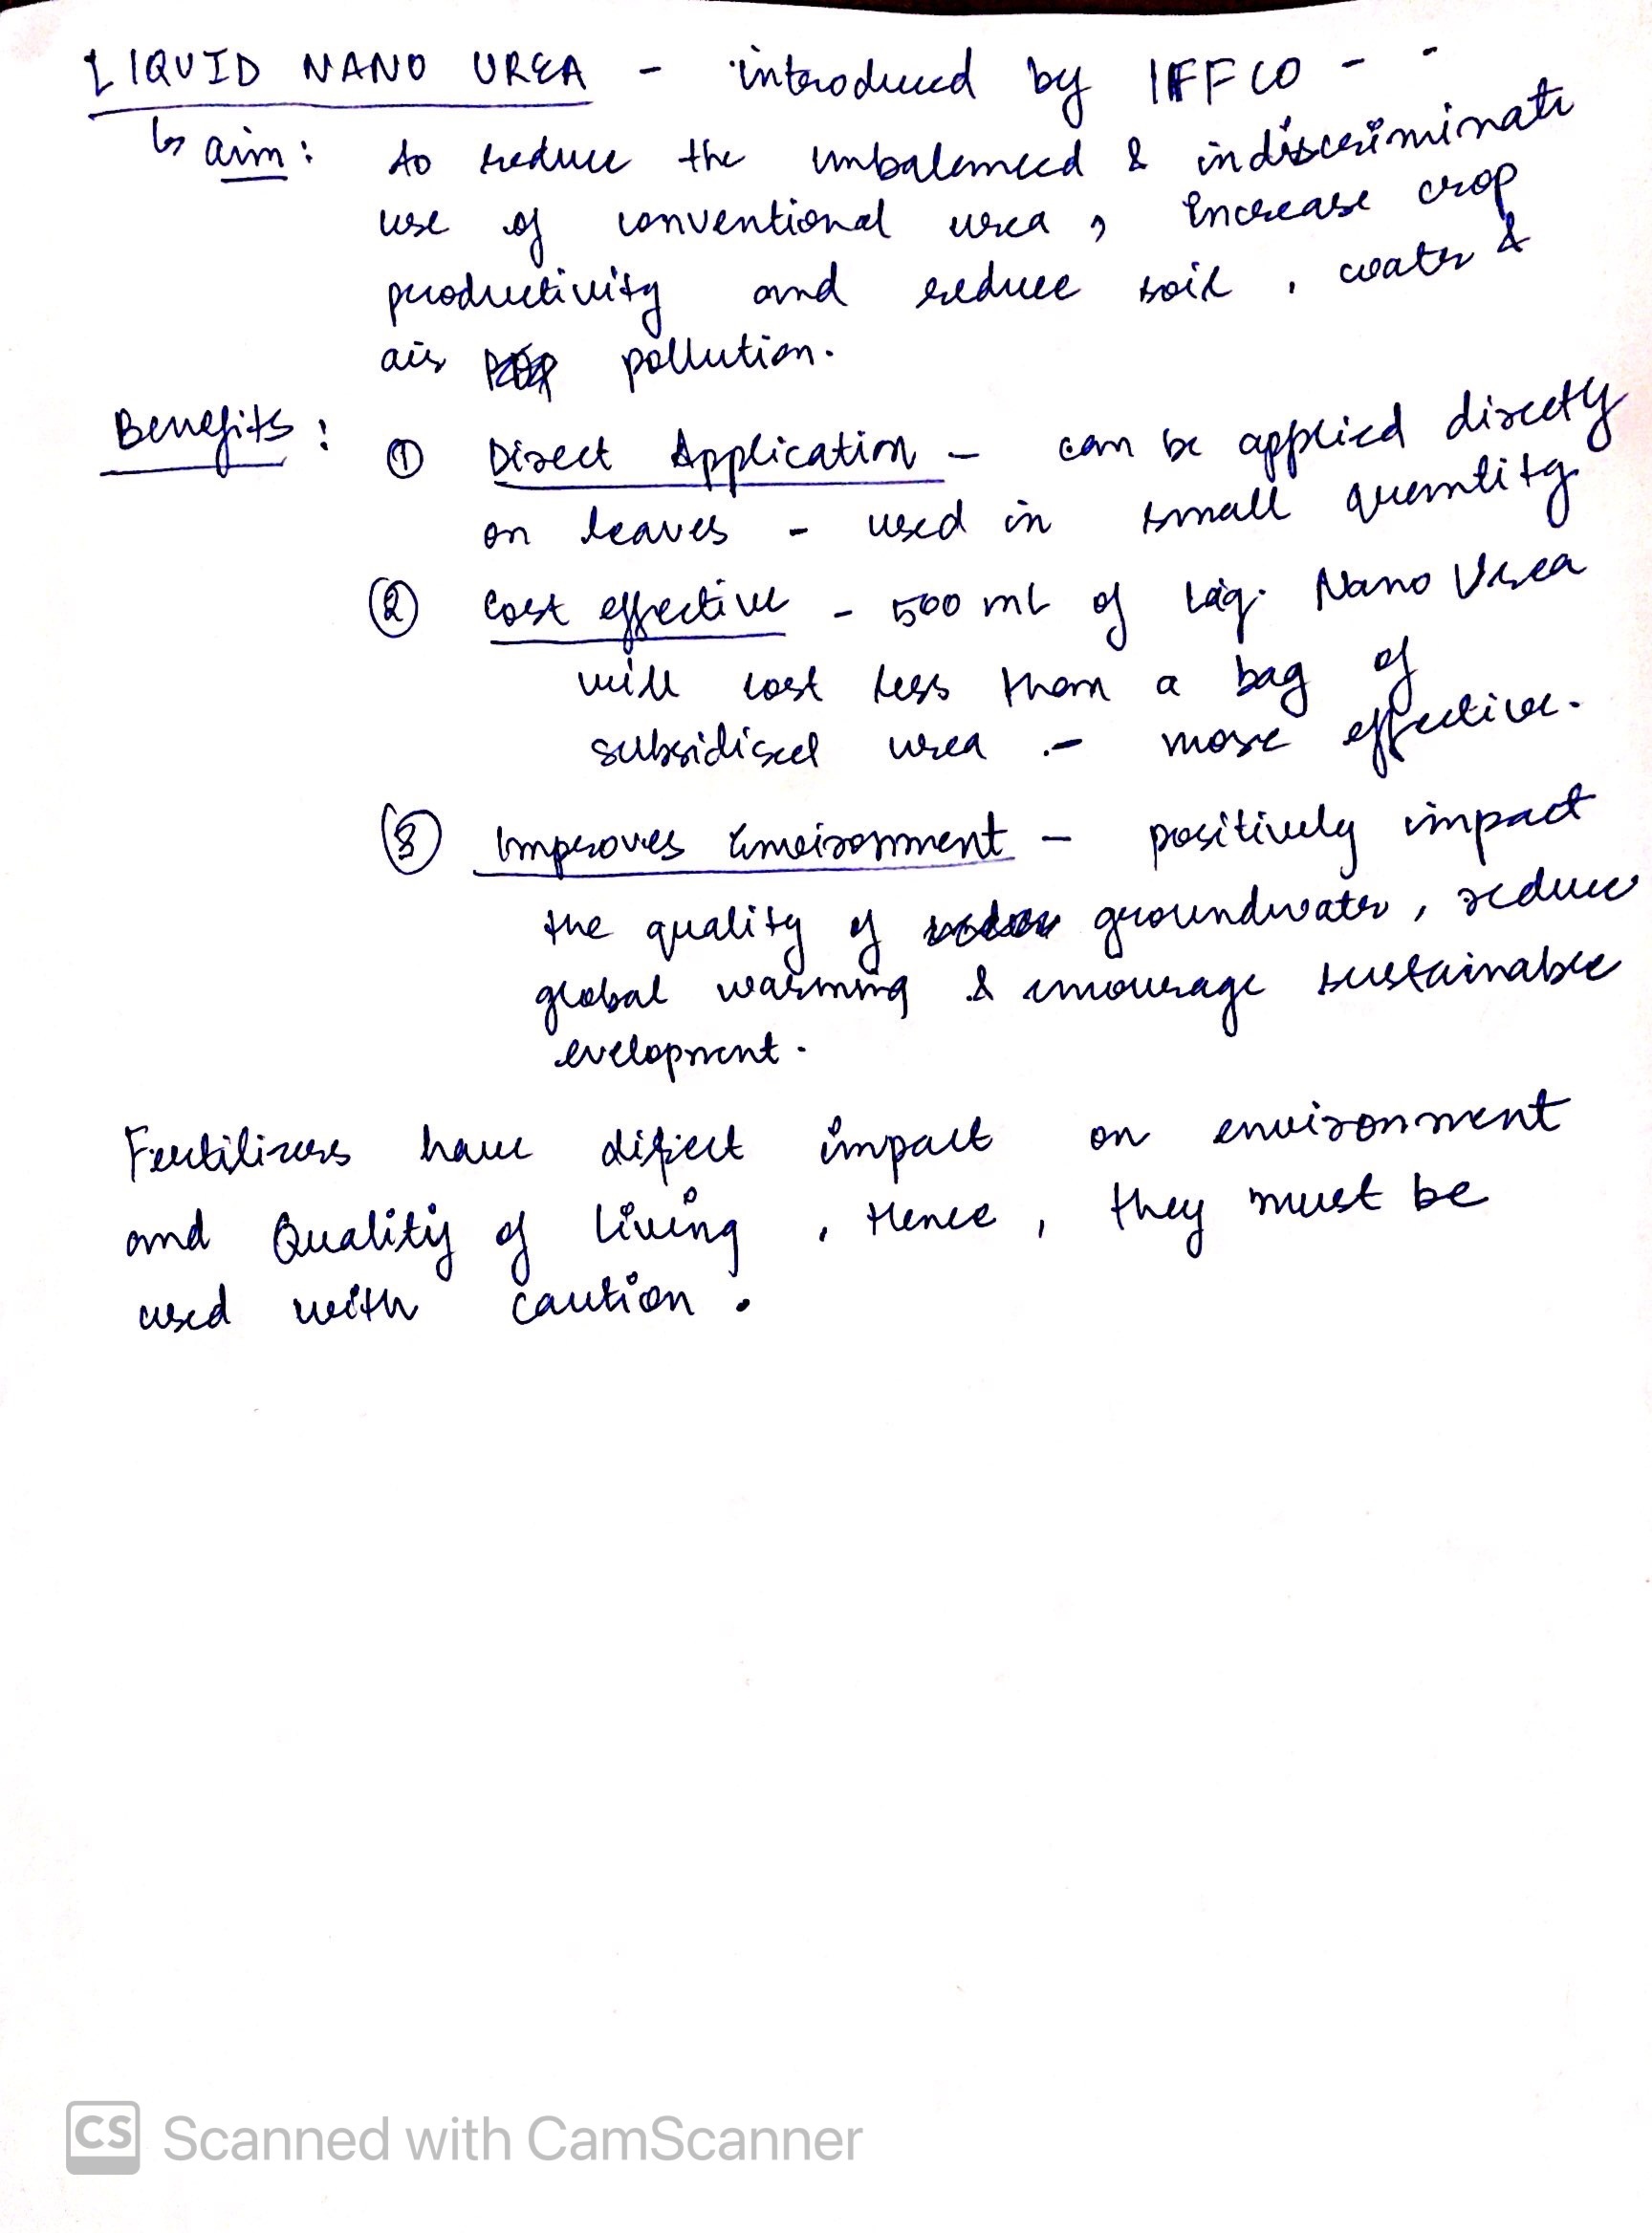 LIQUID NANO UREA - introduced by IFFCO - -
↳ aim: to reduce the imbalanced & indiscriminate
use of conventional urea, increase crop
productivity and reduce soil, water &
air pollution.
Benefits: ① Direct Application - can be applied directly
on leaves - used in small quantity
② Cost effective - 500 mL of Liq. Nano Urea
will cost less than a bag of
subsidised urea - more effective.
③ Improves Environment - positively impact
the quality of groundwater, reduce
global warming & encourage sustainable
evelopment.
Fertilizers have direct impact on environment
and Quality of Living, Hence, they must be
used with caution.
CS Scanned with CamScanner